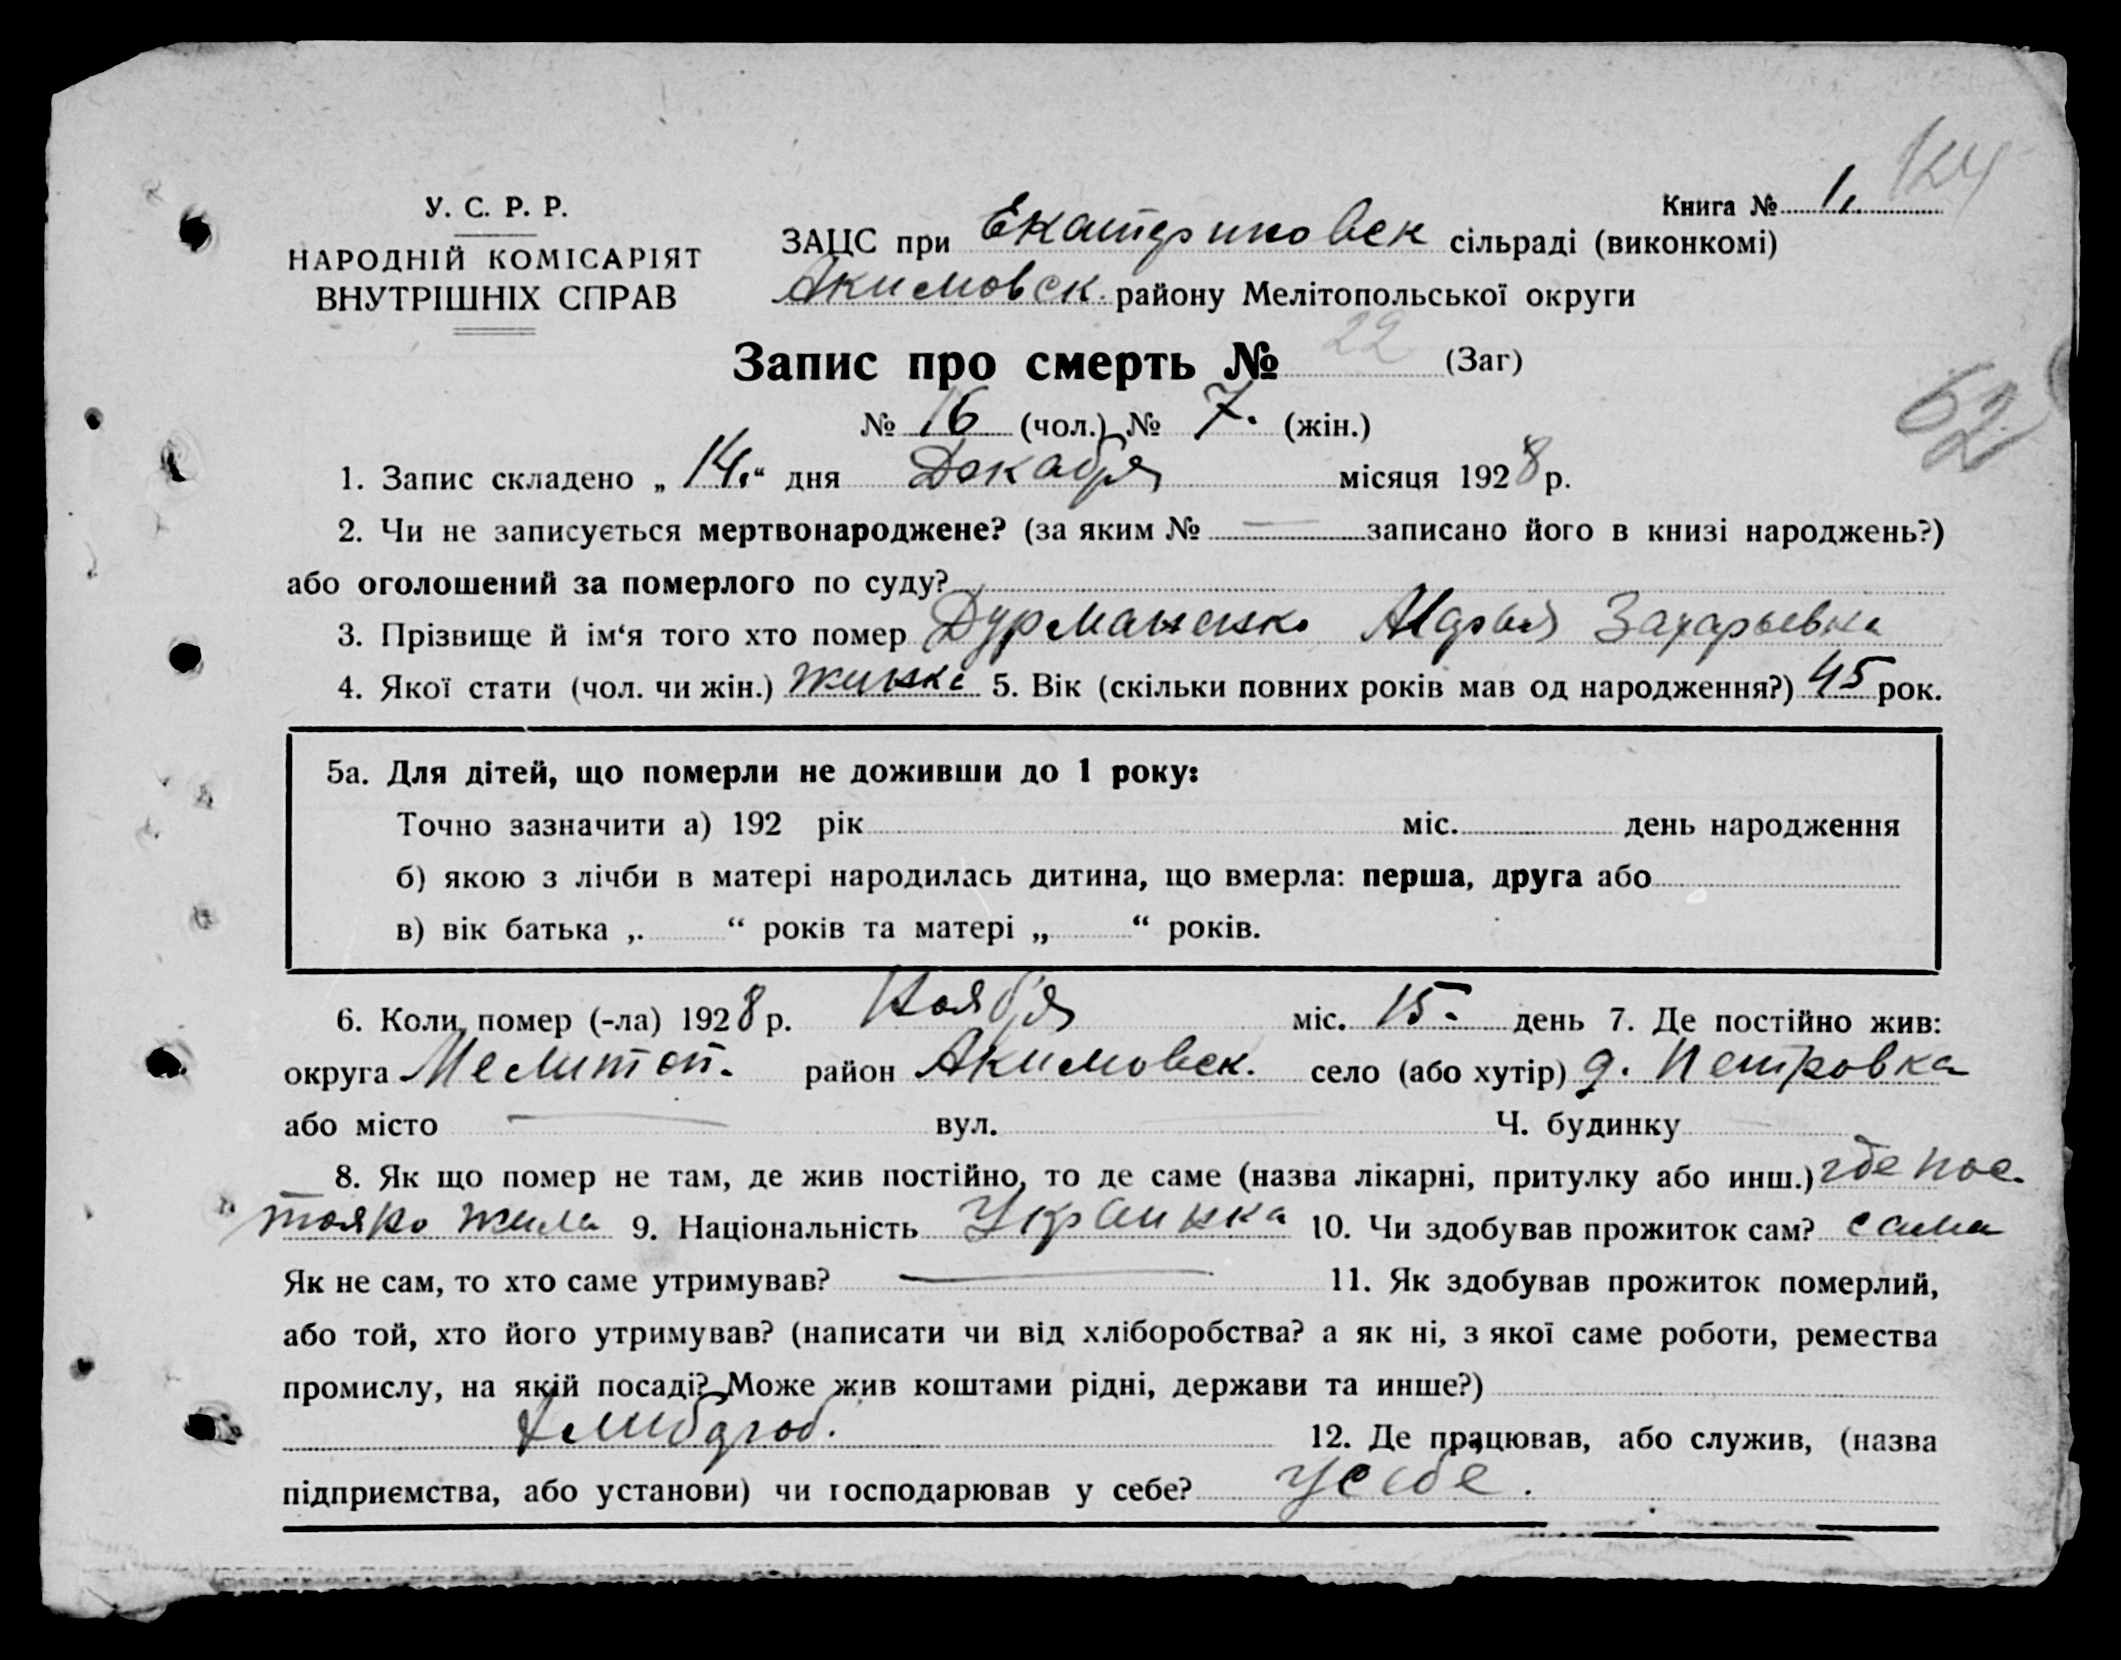 124
Книга № 1.
У. С. Р. Р.
НАРОДНІЙ КОМІСАРІЯТ
ВНУТРІШНІХ СПРАВ
ЗАЦС при Екатериновск сільраді (виконкомі)
Акимовск. району Мелітопольської округи
Запис про смерть № 22 (Заг)
№ 16 (чол.) № 7. (жін.)
62
1. Запис складено „ 14. “ дня Декабря місяця 1928 р.
2. Чи не записується мертвонароджене? (за яким № — записано його в книзі народжень?)
або оголошений за померлого по суду?
3. Прізвище й ім‘я того хто помер Дурманенко Марья Захарьевна
4. Якої стати (чол. чи жін.) жинка 5. Вік (скільки повних років мав од народження?) 45 рок.
5а. Для дітей, що померли не доживши до 1 року:
Точно зазначити а) 192 рік міс. день народження
б) якою з лічби в матері народилась дитина, що вмерла: перша, друга або
в) вік батька „. “ років та матері „ “ років.
6. Коли помер (-ла) 1928 р. Ноября міс. 15. день 7. Де постійно жив:
округа Мелитоп. район Акимовск. село (або хутір) д. Петровка
або місто — вул. Ч. будинку
8. Як що помер не там, де жив постійно, то де саме (назва лікарні, притулку або инш.) где пос-
тояно жила 9. Національність Украинка 10. Чи здобував прожиток сам? сама
Як не сам, то хто саме утримував? — 11. Як здобував прожиток померлий,
або той, хто його утримував? (написати чи від хліборобства? а як ні, з якої саме роботи, ремества
промислу, на якій посаді? Може жив коштами рідні, держави та инше?)
12. Де працював, або служив, (назва
підприємства, або установи) чи господарював у себе? у себе.